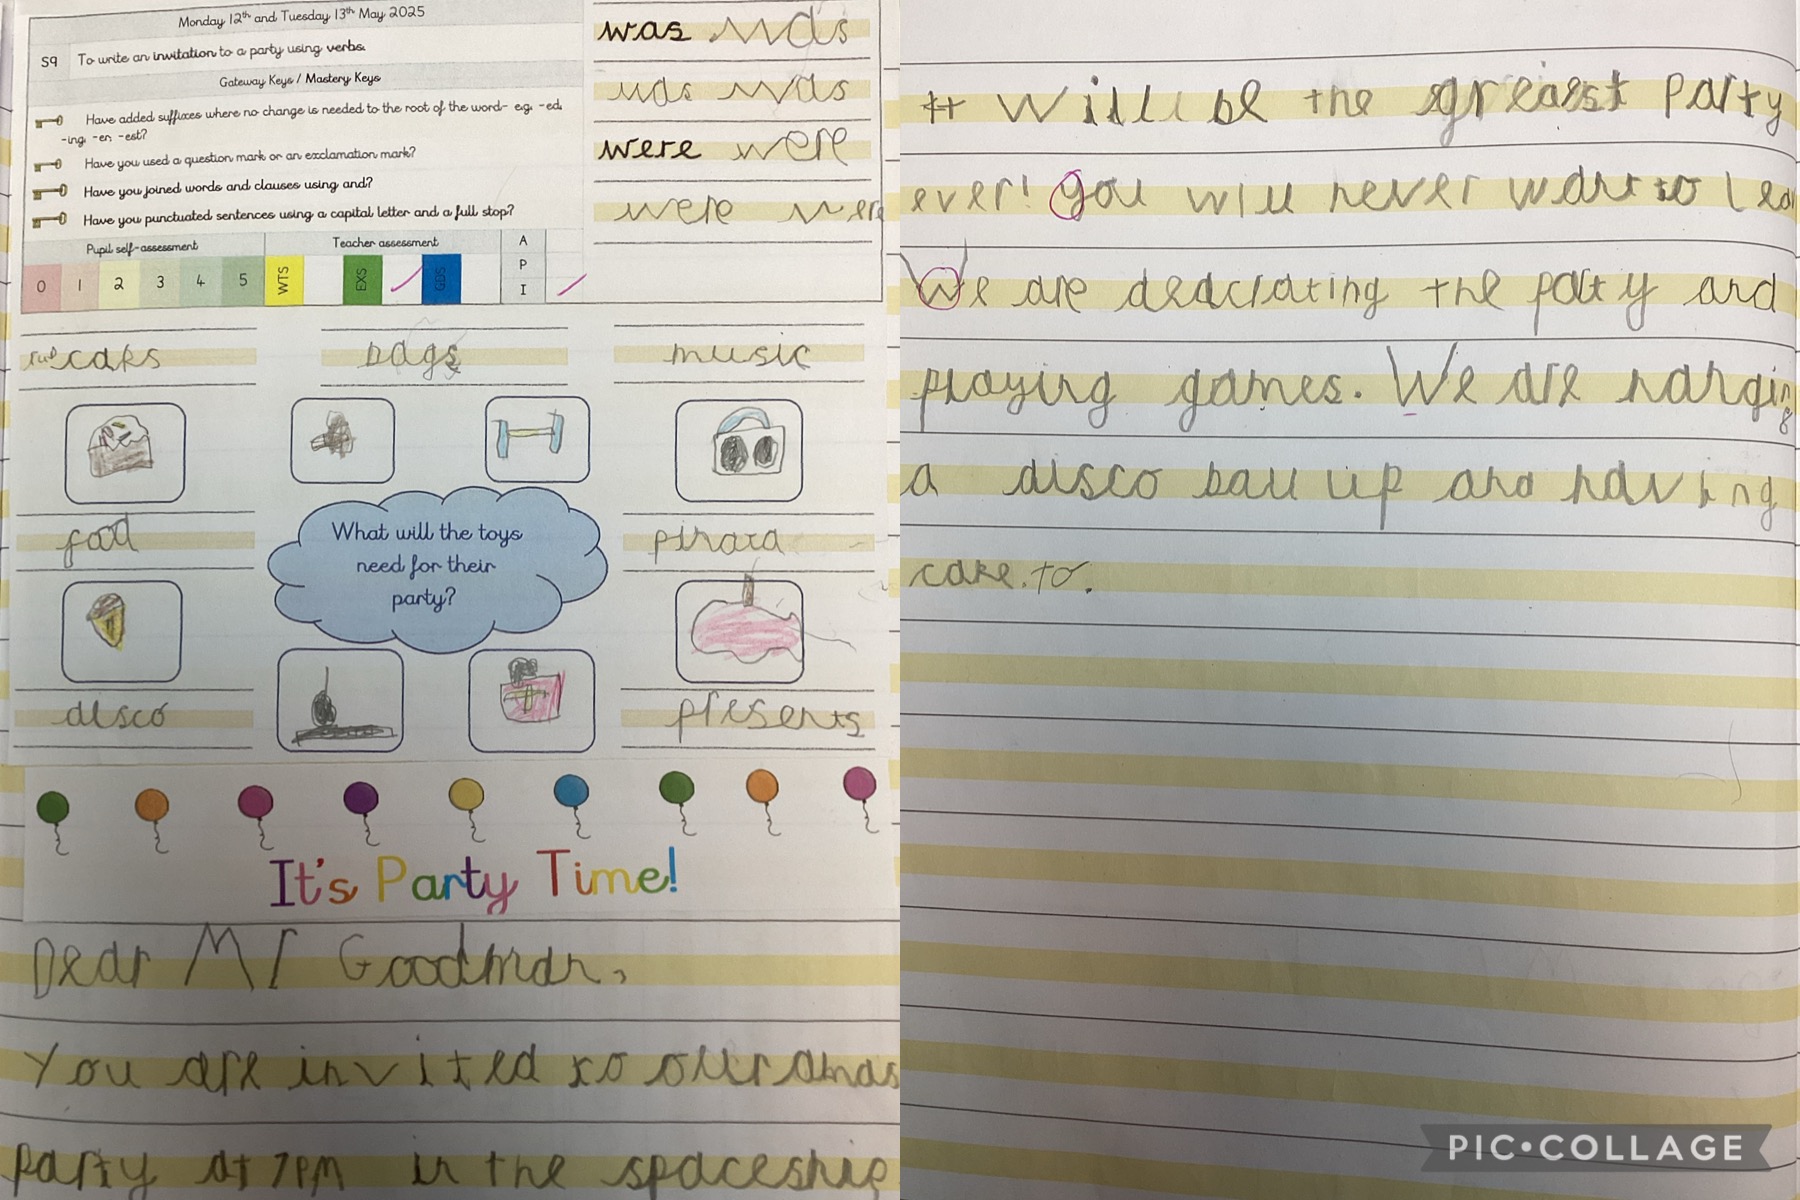 Monday 12th and Tuesday 13th May 2025
S9 To write an invitation to a party using verbs.
Gateway Keys / Mastery Keys
Have added suffixes where no change is needed to the root of the word- e.g. -ed,
-ing, -er, -est?
Have you used a question mark or an exclamation mark?
Have you joined words and clauses using and?
Have you punctuated sentences using a capital letter and a full stop?
Pupil self-assessment Teacher assessment
0 1 2 3 4 5 WTS EXS GDS
A
P
I
was was
was was
were were
were were
caks bags music
food pinata
What will the toys
need for their
party?
disco presents
It's Party Time!
Dear Mr Goodman,
You are invited to our
party at 7PM in the spaceship
It will be the greatest party
ever! you will never want to
We are deacrating the party and
playing games. We are hanging
a disco ball up and having
cake. to.
PIC•COLLAGE